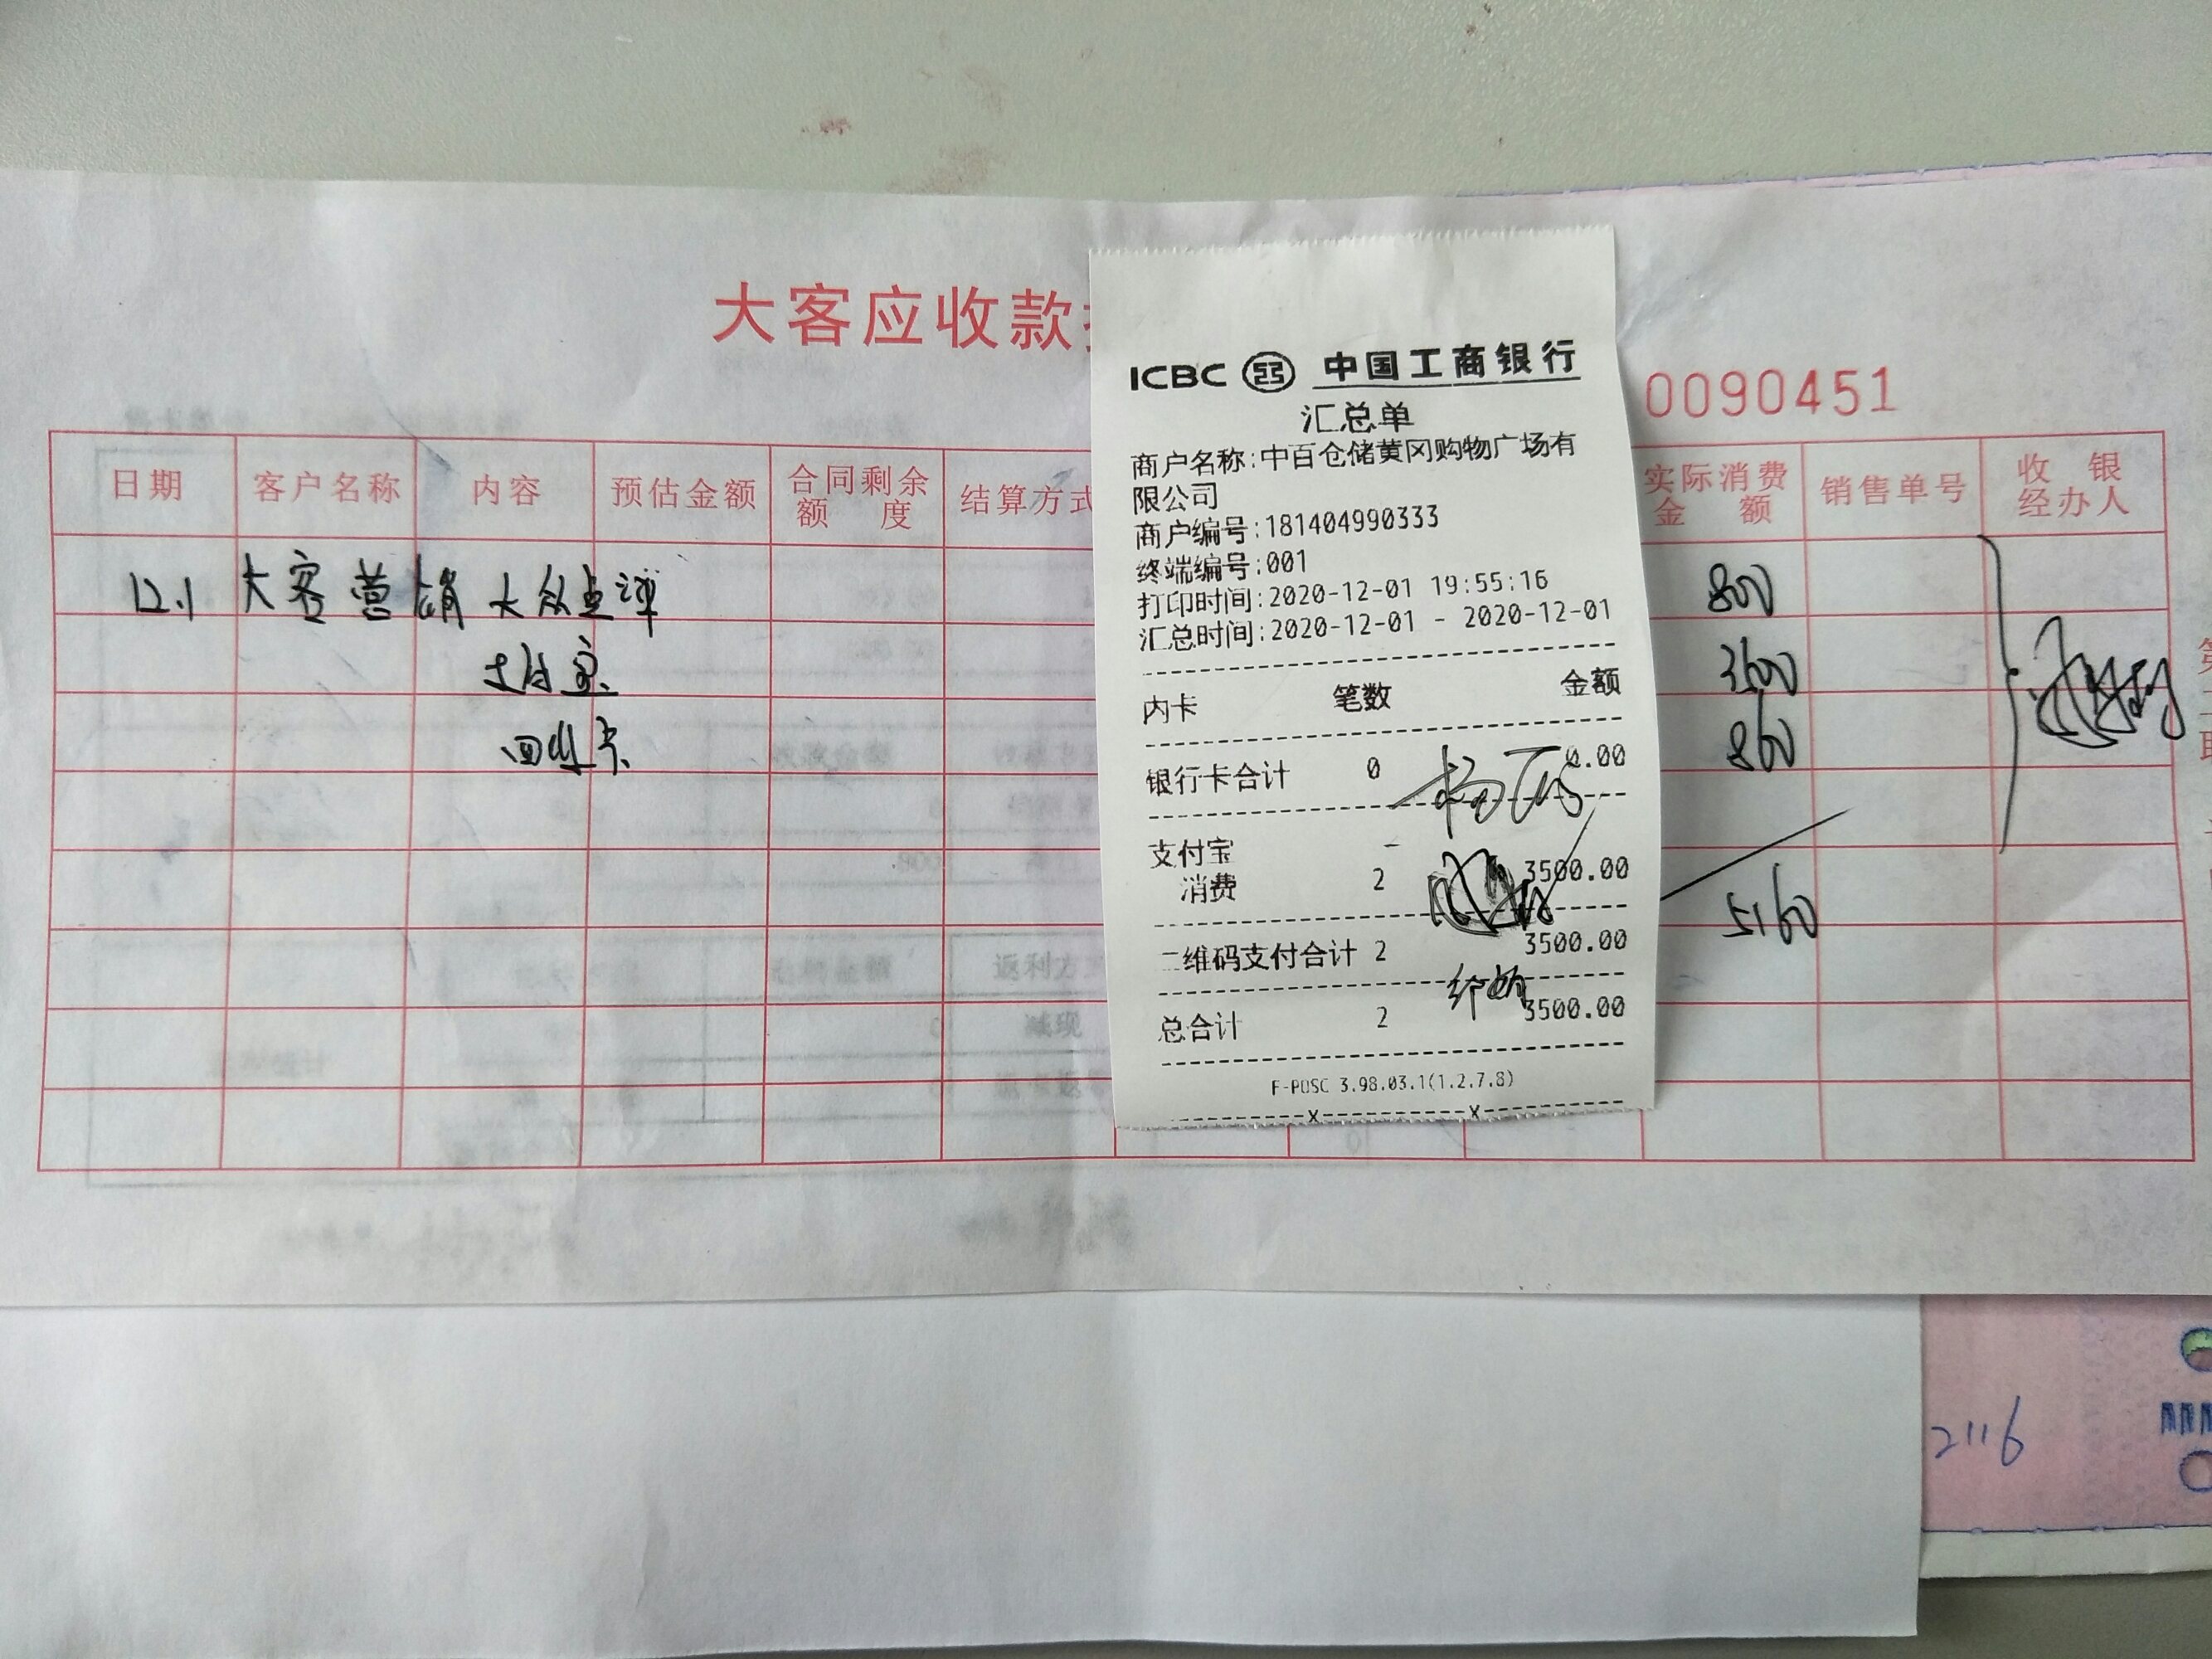 大客应收款
0090451
日期 客户名称 内容 预估金额 合同剩余额度 结算方式 实际消费金额 销售单号 收银经办人
12.1 大客营销 大众点评 800
支付宝 3500
回收卡 860
5160
ICBC 中国工商银行
汇总单
商户名称:中百仓储黄冈购物广场有
限公司
商户编号:181404990333
终端编号:001
打印时间:2020-12-01 19:55:16
汇总时间:2020-12-01 - 2020-12-01
内卡 笔数 金额
银行卡合计 0 0.00
支付宝
消费 2 3500.00
二维码支付合计 2 3500.00
总合计 2 3500.00
F-POSC 3.98.03.1(1.2.7.8)
返利方
减现
2116